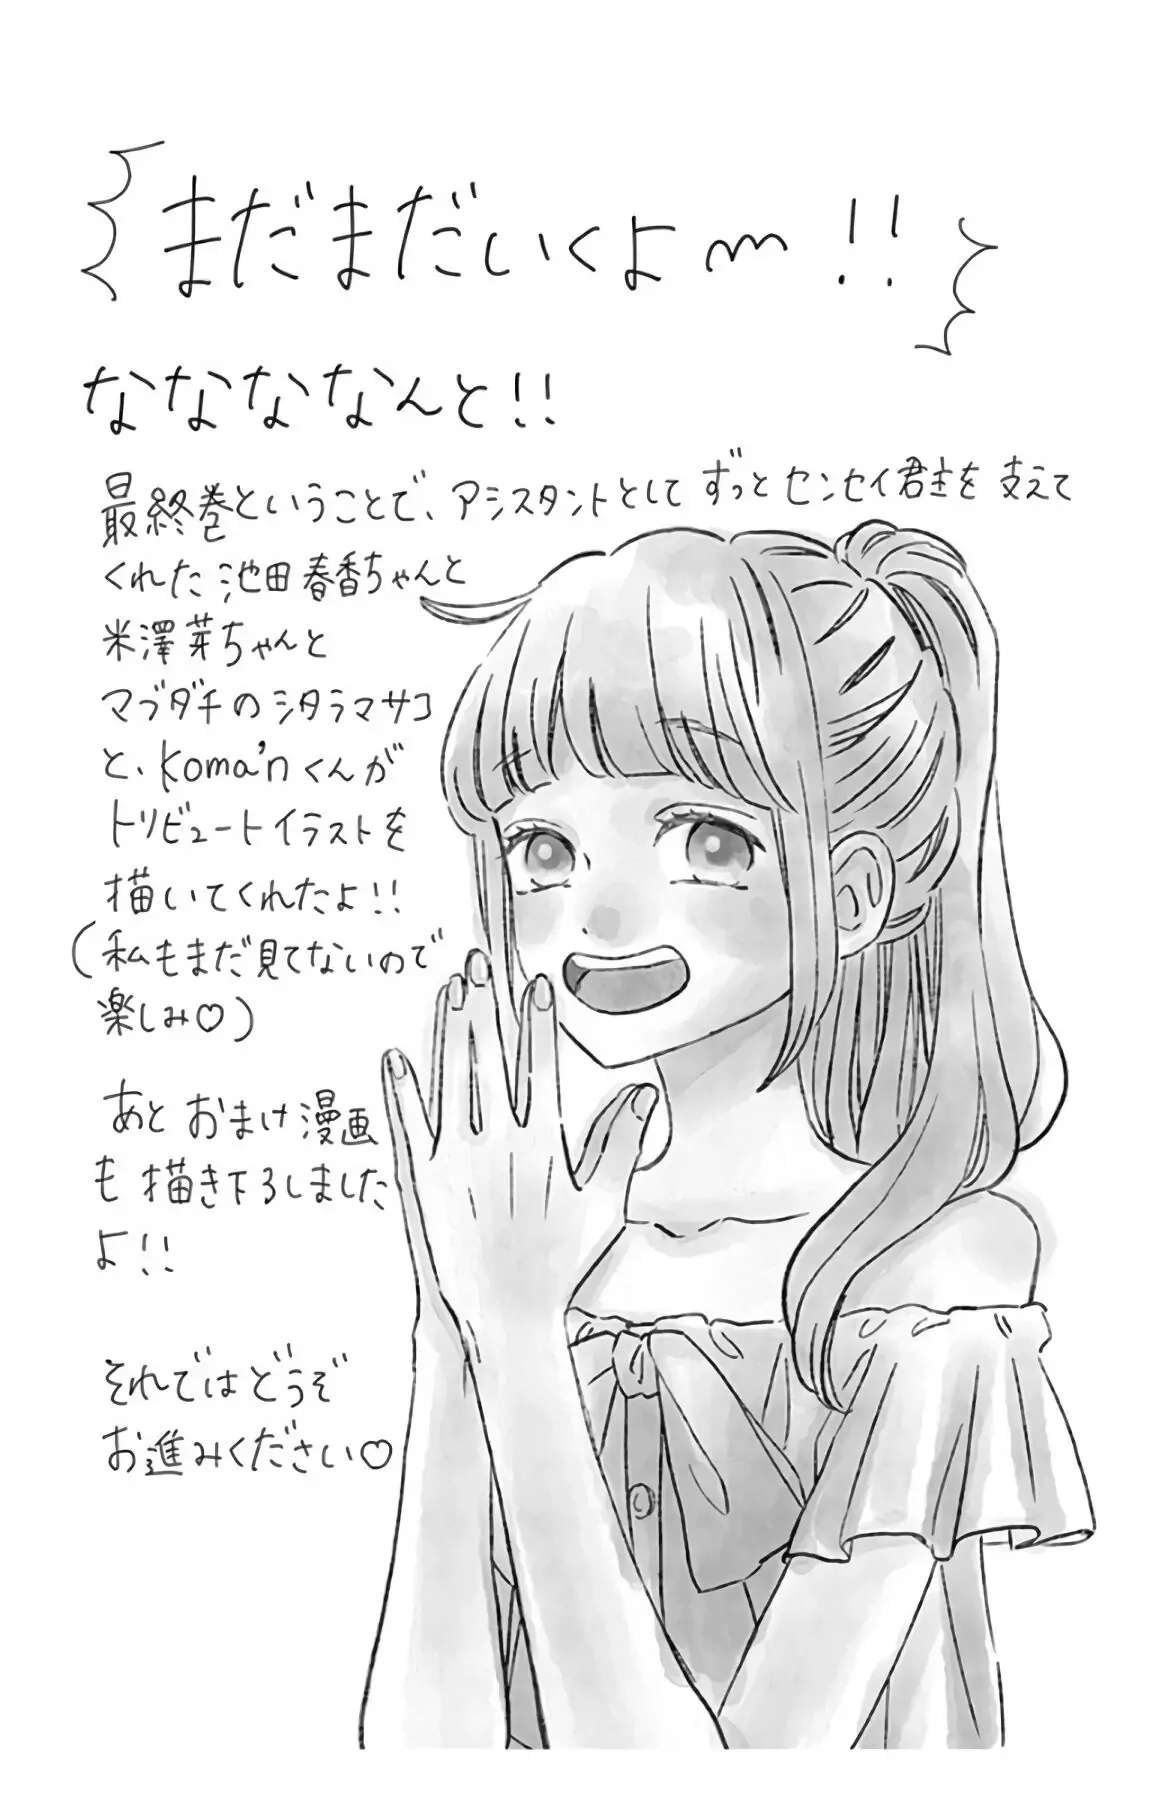 まだまだいくよ〜!!
なななななんと!!
最終巻ということで、アシスタントとしてずっとセンセイ君主を支えて
くれた池田春香ちゃんと
米澤芽ちゃんと
マブダチのシタラマサコ
と、koma'nくんが
トリビュートイラストを
描いてくれたよ!!
(私もまだ見てないので
楽しみ♡)
あとおまけ漫画
も描き下ろしました
よ!!
それではどうぞ
お進みください♡